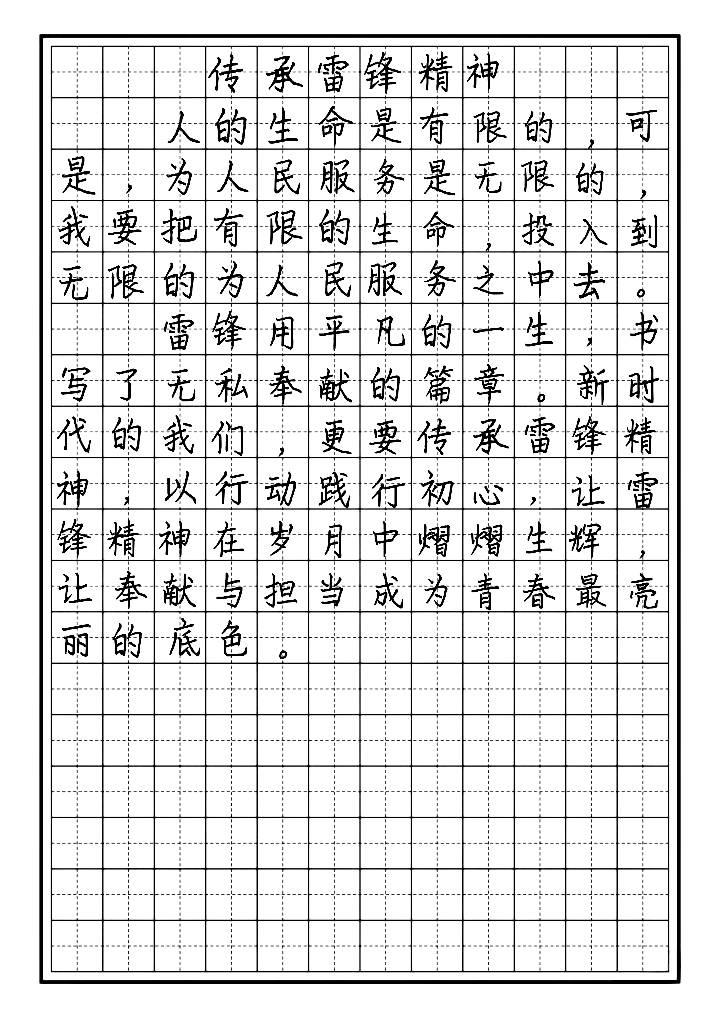 传承雷锋精神
人的生命是有限的，可
是，为人民服务是无限的，
我要把有限的生命，投入到
无限的为人民服务之中去。
雷锋用平凡的一生，书
写了无私奉献的篇章。新时
代的我们，更要传承雷锋精
神，以行动践行初心，让雷
锋精神在岁月中熠熠生辉，
让奉献与担当成为青春最亮
丽的底色。